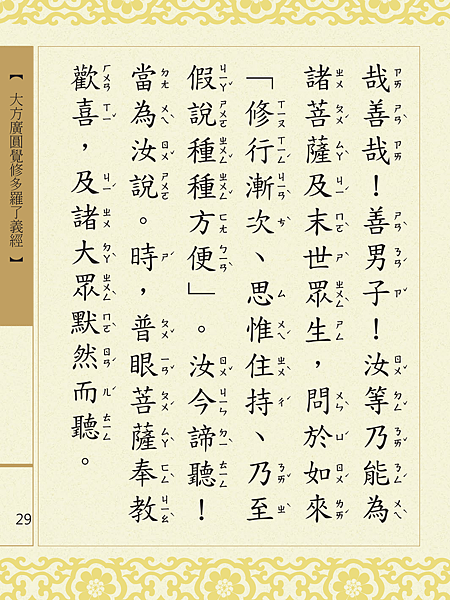 哉善哉！善男子！汝等乃能為
諸菩薩及末世眾生，問於如來
「修行漸次、思惟住持、乃至
假說種種方便」。汝今諦聽！
當為汝說。時，普眼菩薩奉教
歡喜，及諸大眾默然而聽。
【大方廣圓覺修多羅了義經】
29